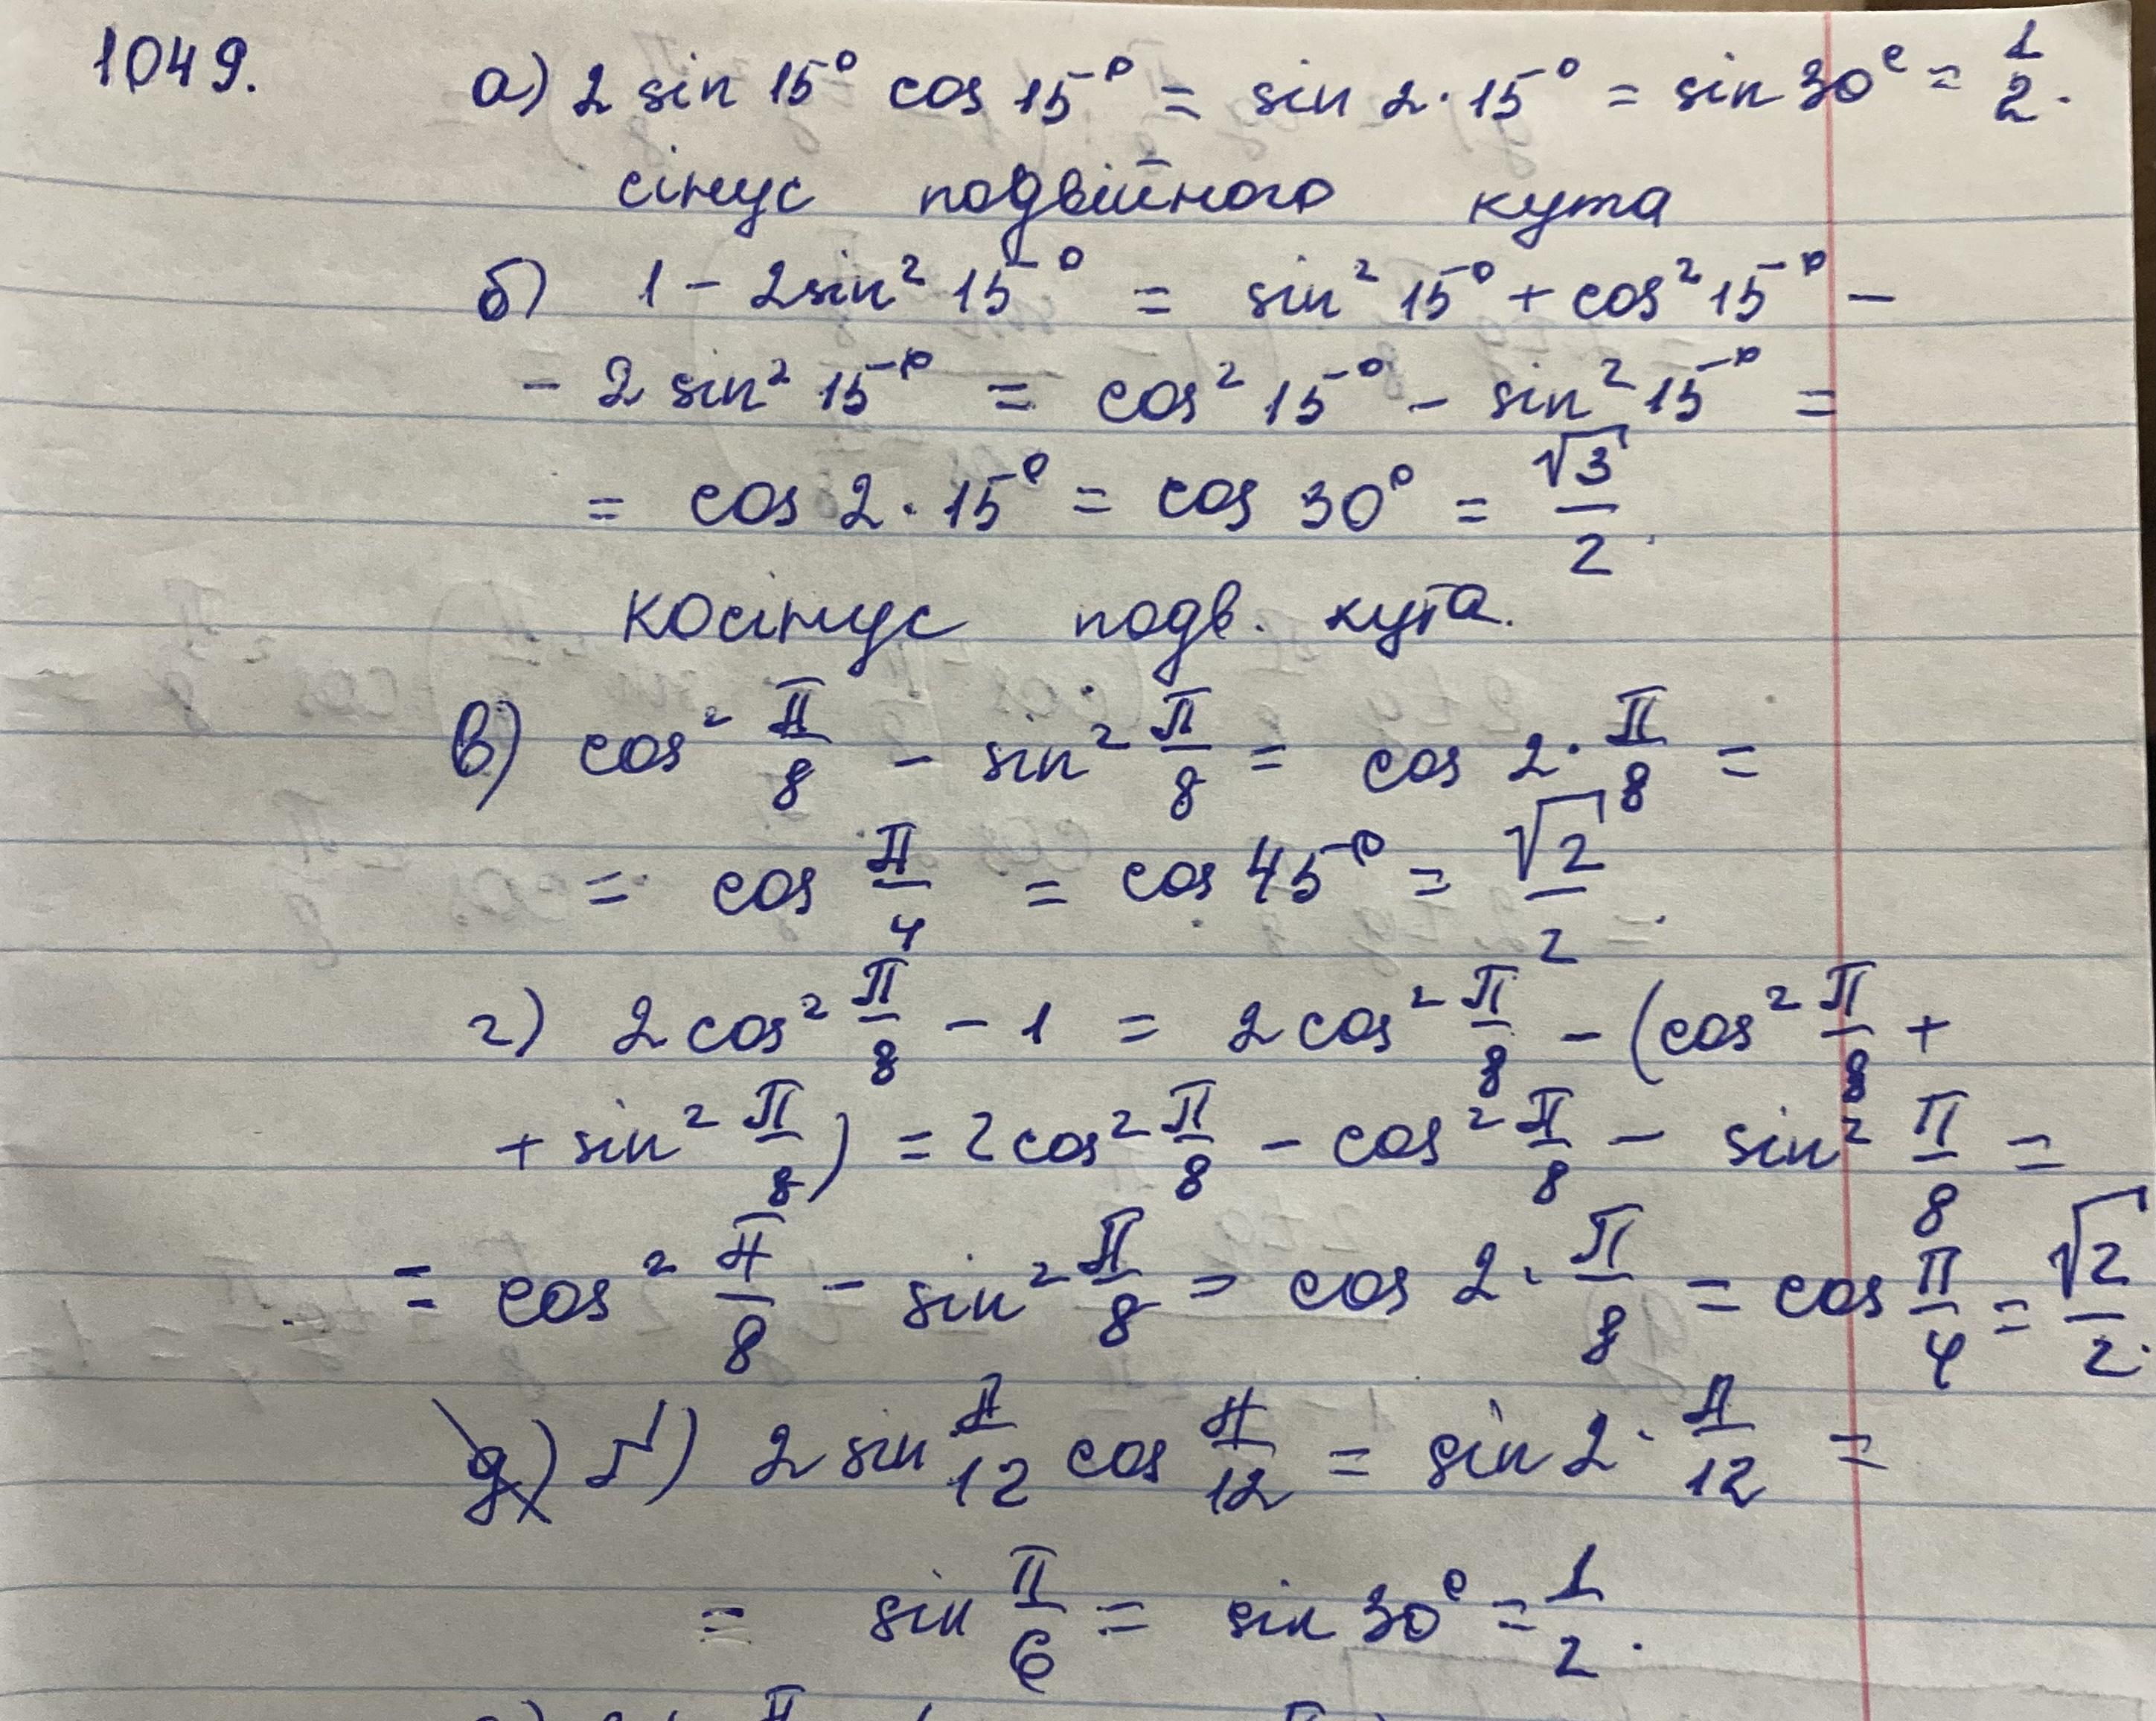 1049. а) 2 sin 15° cos 15° = sin 2·15° = sin 30° = 1/2.
сінус подвійного кута
б) 1 - 2sin² 15° = sin² 15° + cos² 15° -
- 2 sin² 15° = cos² 15° - sin² 15° =
= cos 2·15° = cos 30° = √3/2.
косінус подв. кута.
в) cos² π/8 - sin² π/8 = cos 2·π/8 =
= cos π/4 = cos 45° = √2/2.
г) 2 cos² π/8 - 1 = 2 cos² π/8 - (cos² π/8 +
+ sin² π/8) = 2cos² π/8 - cos² π/8 - sin² π/8 =
= cos² π/8 - sin² π/8 = cos 2·π/8 = cos π/4 = √2/2.
ґ) 2 sin π/12 cos π/12 = sin 2·π/12 =
= sin π/6 = sin 30° = 1/2.